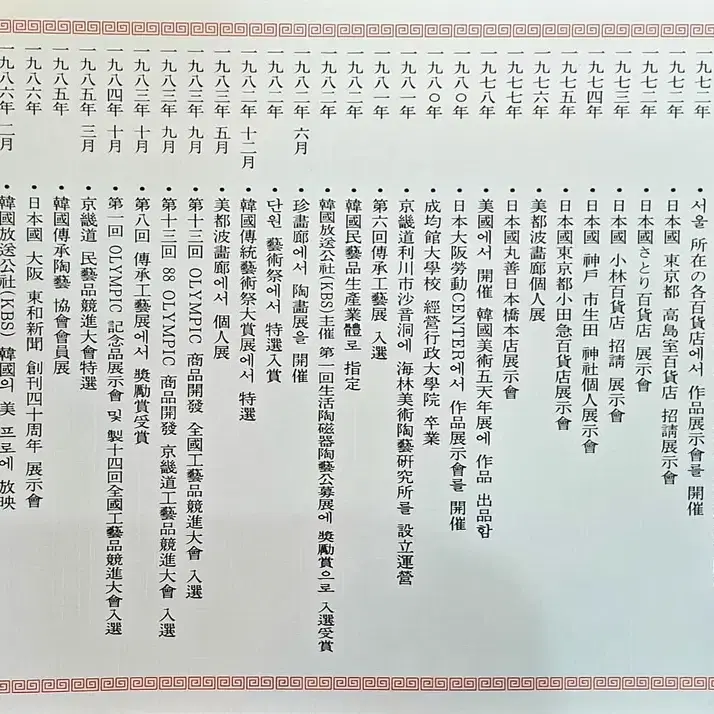 一九七二年 • 서울 所在の各百貨店에서 作品展示會를 開催
一九七二年 • 日本國 東京都 高島室百貨店 招請展示會
一九七二年 • 日本國さとり百貨店 展示會
一九七三年 • 日本國 小林百貨店 招請 展示會
一九七四年 • 日本國 神戶 市生田 神社個人展示會
一九七五年 • 日本國東京都小田急百貨店展示會
一九七六年 • 美都波畵廊個人展
一九七七年 • 日本國丸善日本橋本店展示會
一九七八年 • 美國에서 開催 韓國美術五天年展에 作品 出品함
一九八〇年 • 日本大阪勞動CENTER에서 作品展示會를 開催
一九八〇年 • 成均館大學校 經營行政大學院 卒業
一九八一年 • 京畿道利川市沙音洞에 海林美術陶藝硏究所를 設立運營
一九八一年 • 第六回傳承工藝展 入選
一九八二年 • 韓國民藝品生産業體로 指定
一九八二年 • 韓國放送公社(KBS)主催 第一回生活陶磁器陶藝公募展에 獎勵賞으로 入選受賞
一九八二年 六月 • 珍畵廊에서 陶畵展을 開催
一九八二年 • 단원 藝術祭에서 特選入賞
一九八二年 十二月 • 韓國傳統藝術祭大賞展에서 特選
一九八三年 五月 • 美都波畵廊에서 個人展
一九八三年 九月 • 第十三回 OLYMPIC 商品開發 全國工藝品競進大會 入選
一九八三年 九月 • 第十三回 88 OLYMPIC 商品開發 京畿道工藝品競進大會 入選
一九八三年 十月 • 第八回 傳承工藝展에서 獎勵賞受賞
一九八四年 十月 • 第一回 OLYMPIC 記念品展示會 및 製十四回全國工藝品競進大會入選
一九八五年 三月 • 京畿道 民藝品競進大會特選
一九八五年 • 韓國傳承陶藝 協會會員展
一九八六年 • 日本國 大阪 東和新聞 創刊四十周年 展示會
一九八六年 二月 • 韓國放送公社(KBS) 韓國의 美 프로에 放映